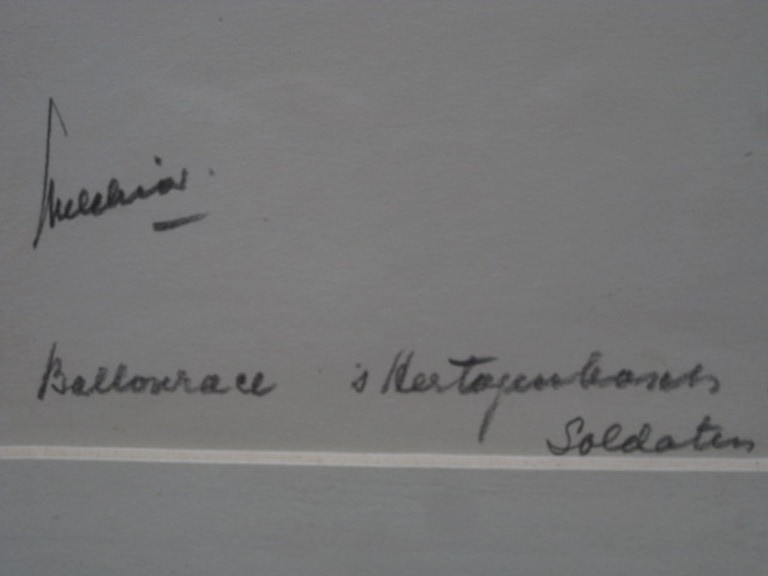 Melchior.
Ballonrace 's Hertogenbosch
Soldaten